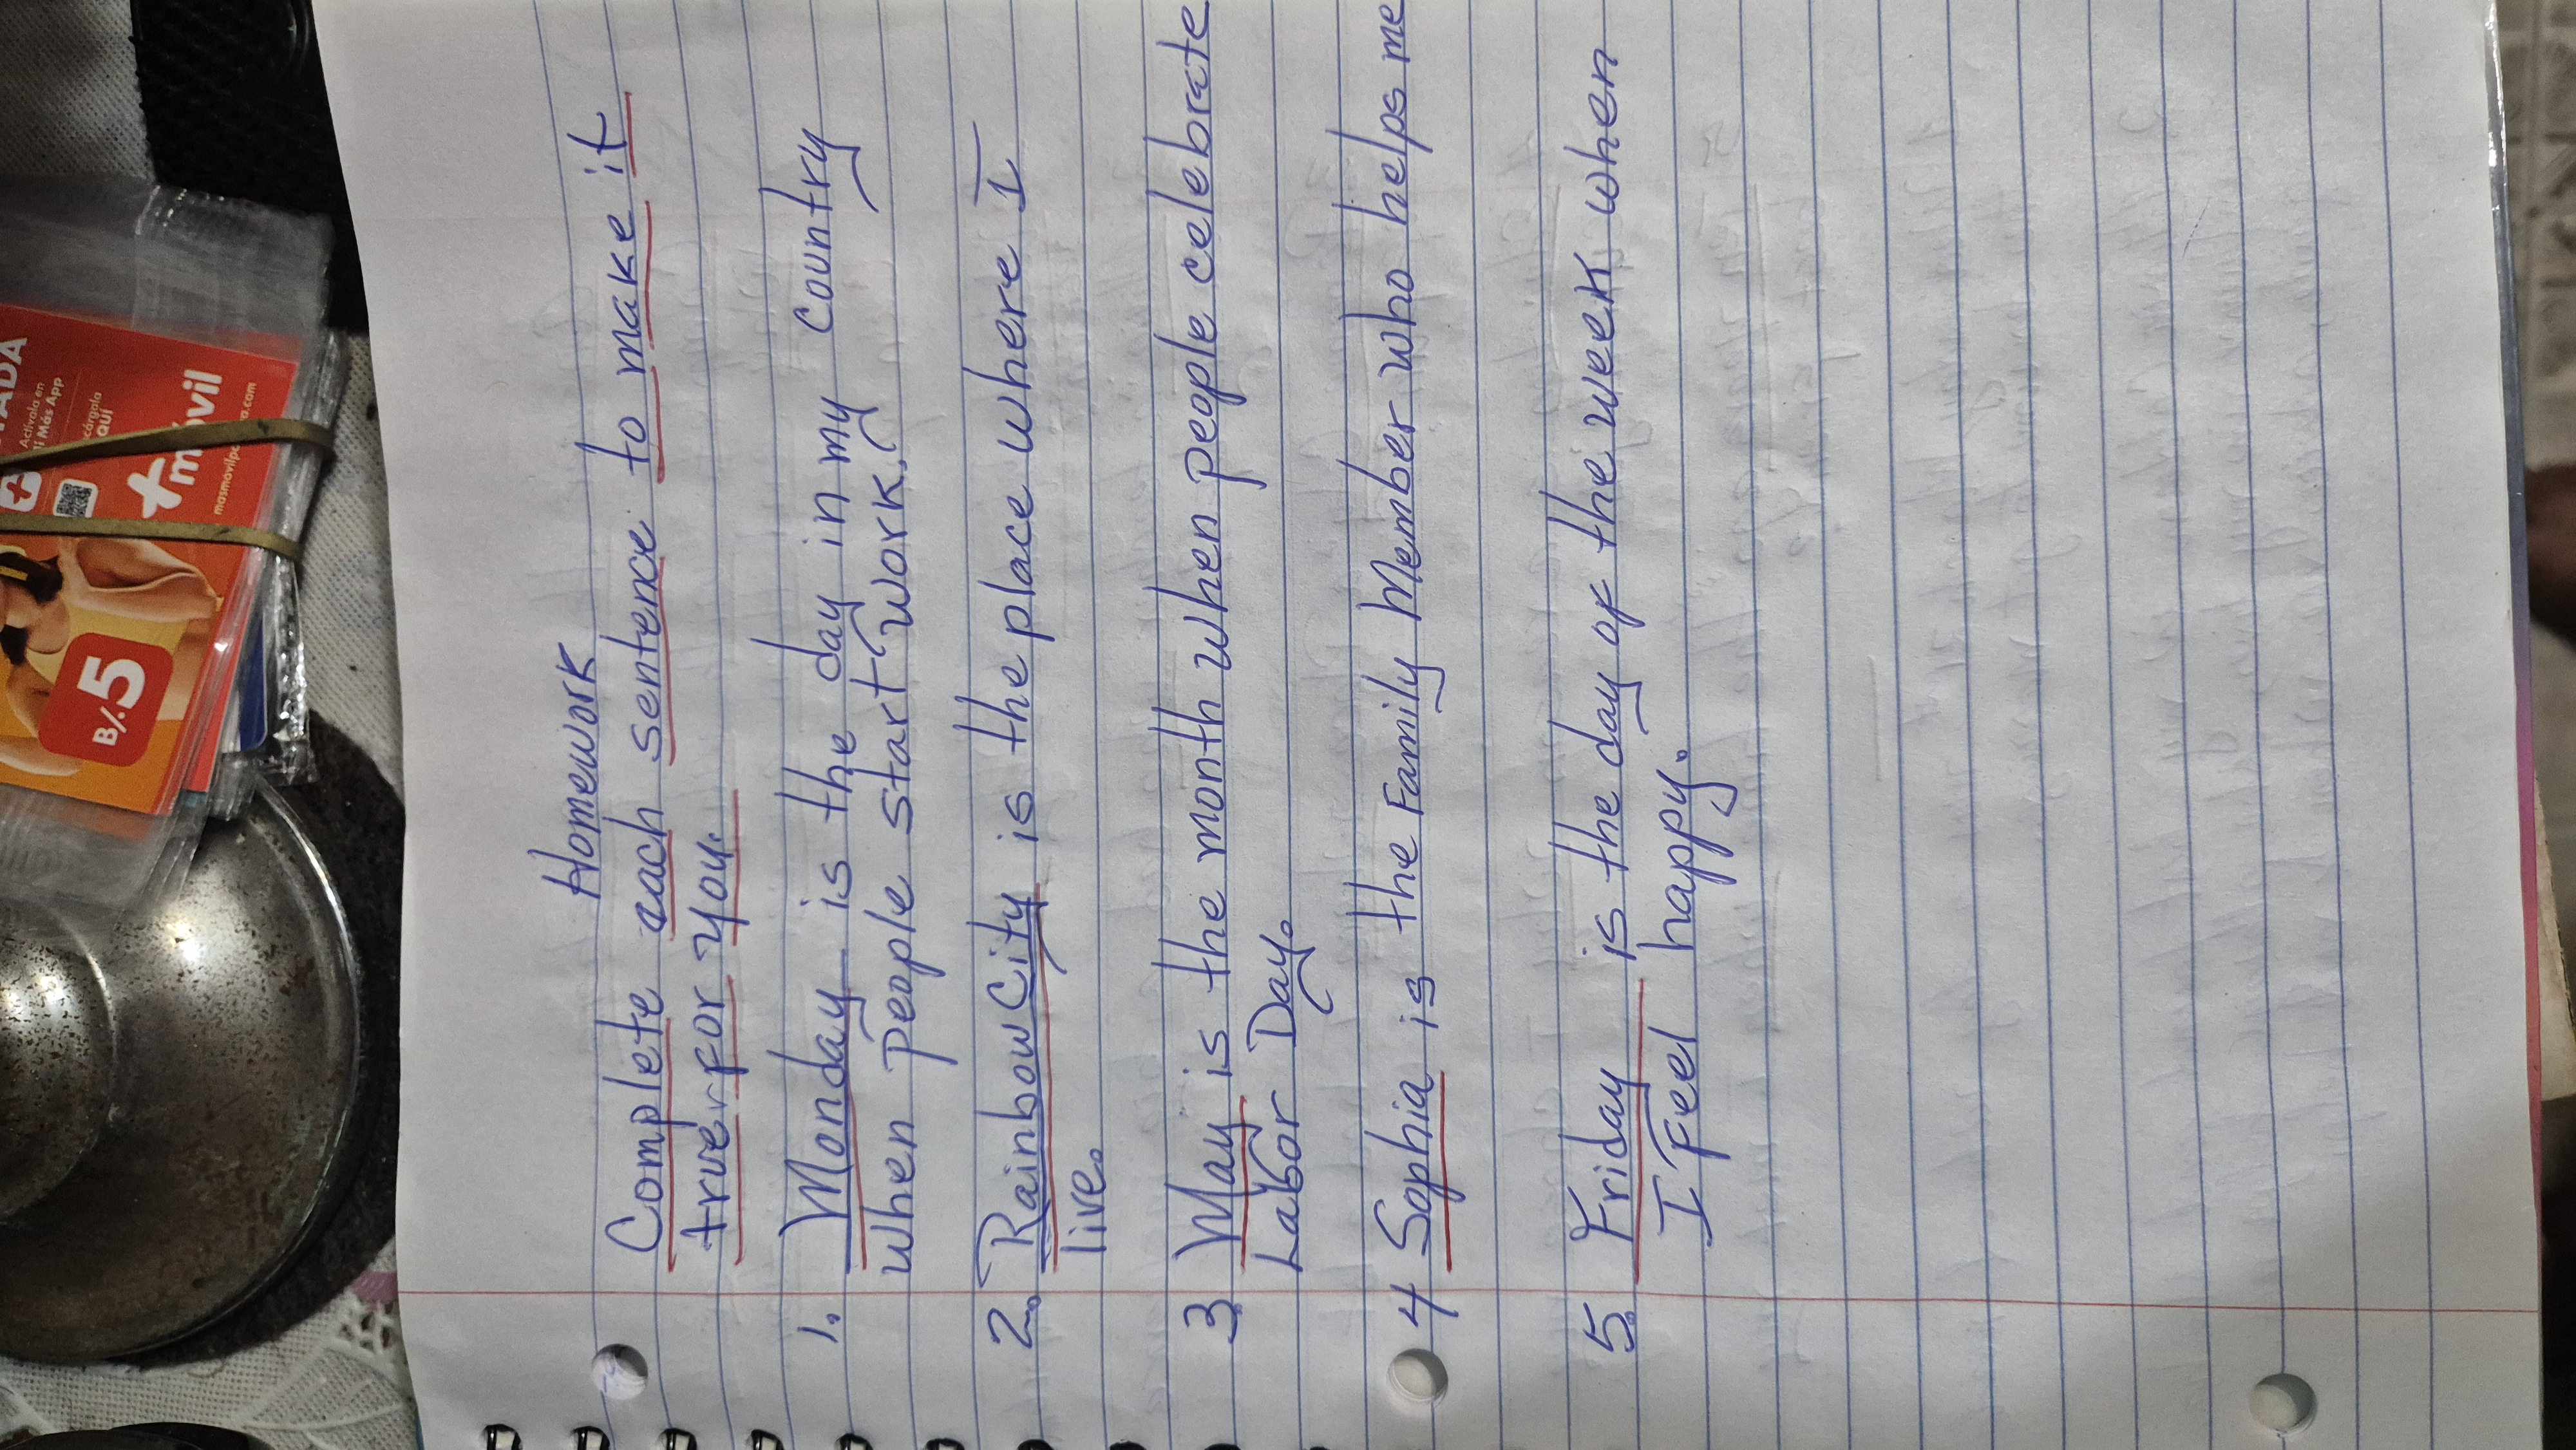 Homework
Complete each sentence to make it
true for you.
1. Monday is the day in my country
when people start work.
2. Rainbow City is the place where I
live.
3. May is the month when people celebrate
Labor Day.
4 Sophia is the Family Member who helps me
5. Friday is the day of the week when
I Feel happy.
Actívala en
Más App
QUÍ
B/.5